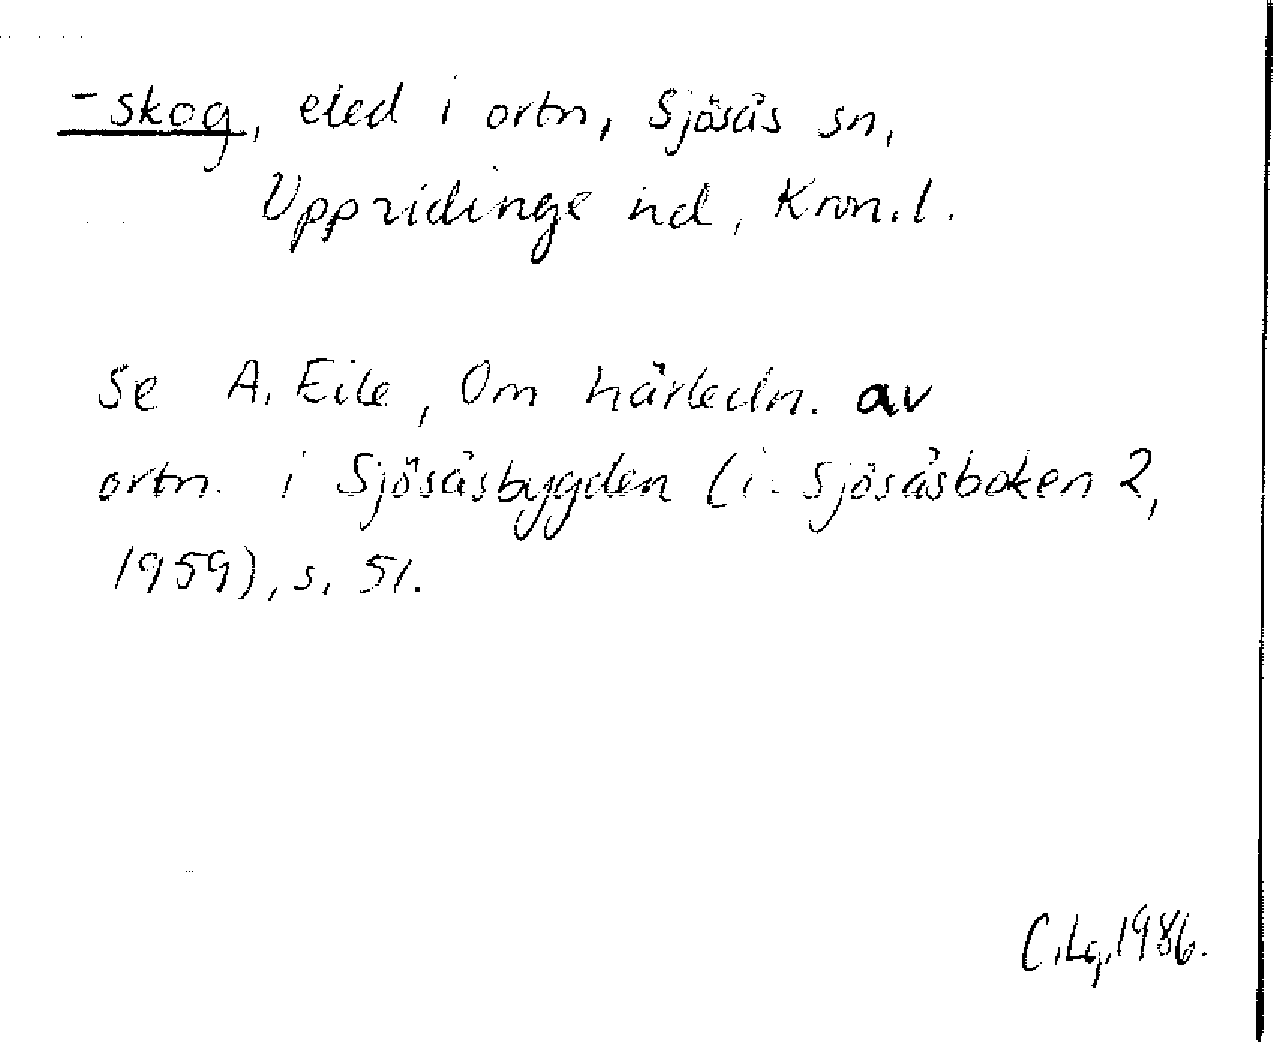 -skog, eled i ortn, Sjösås sn,
Uppvidinge hd, Kron.l.
Se A. Eile, Om härledn. av
ortn. i Sjösåsbygden (i. Sjösåsboken 2,
1959), s. 51.
C.Lg,1986.